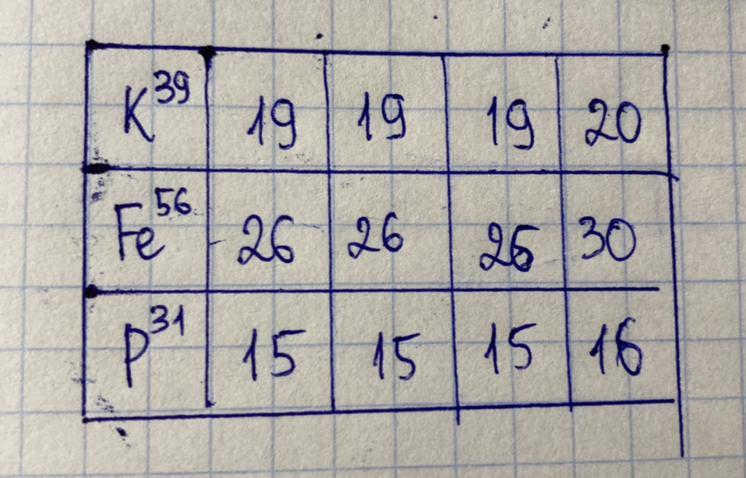 K³⁹ 19 19 19 20
Fe⁵⁶ 26 26 26 30
P³¹ 15 15 15 16